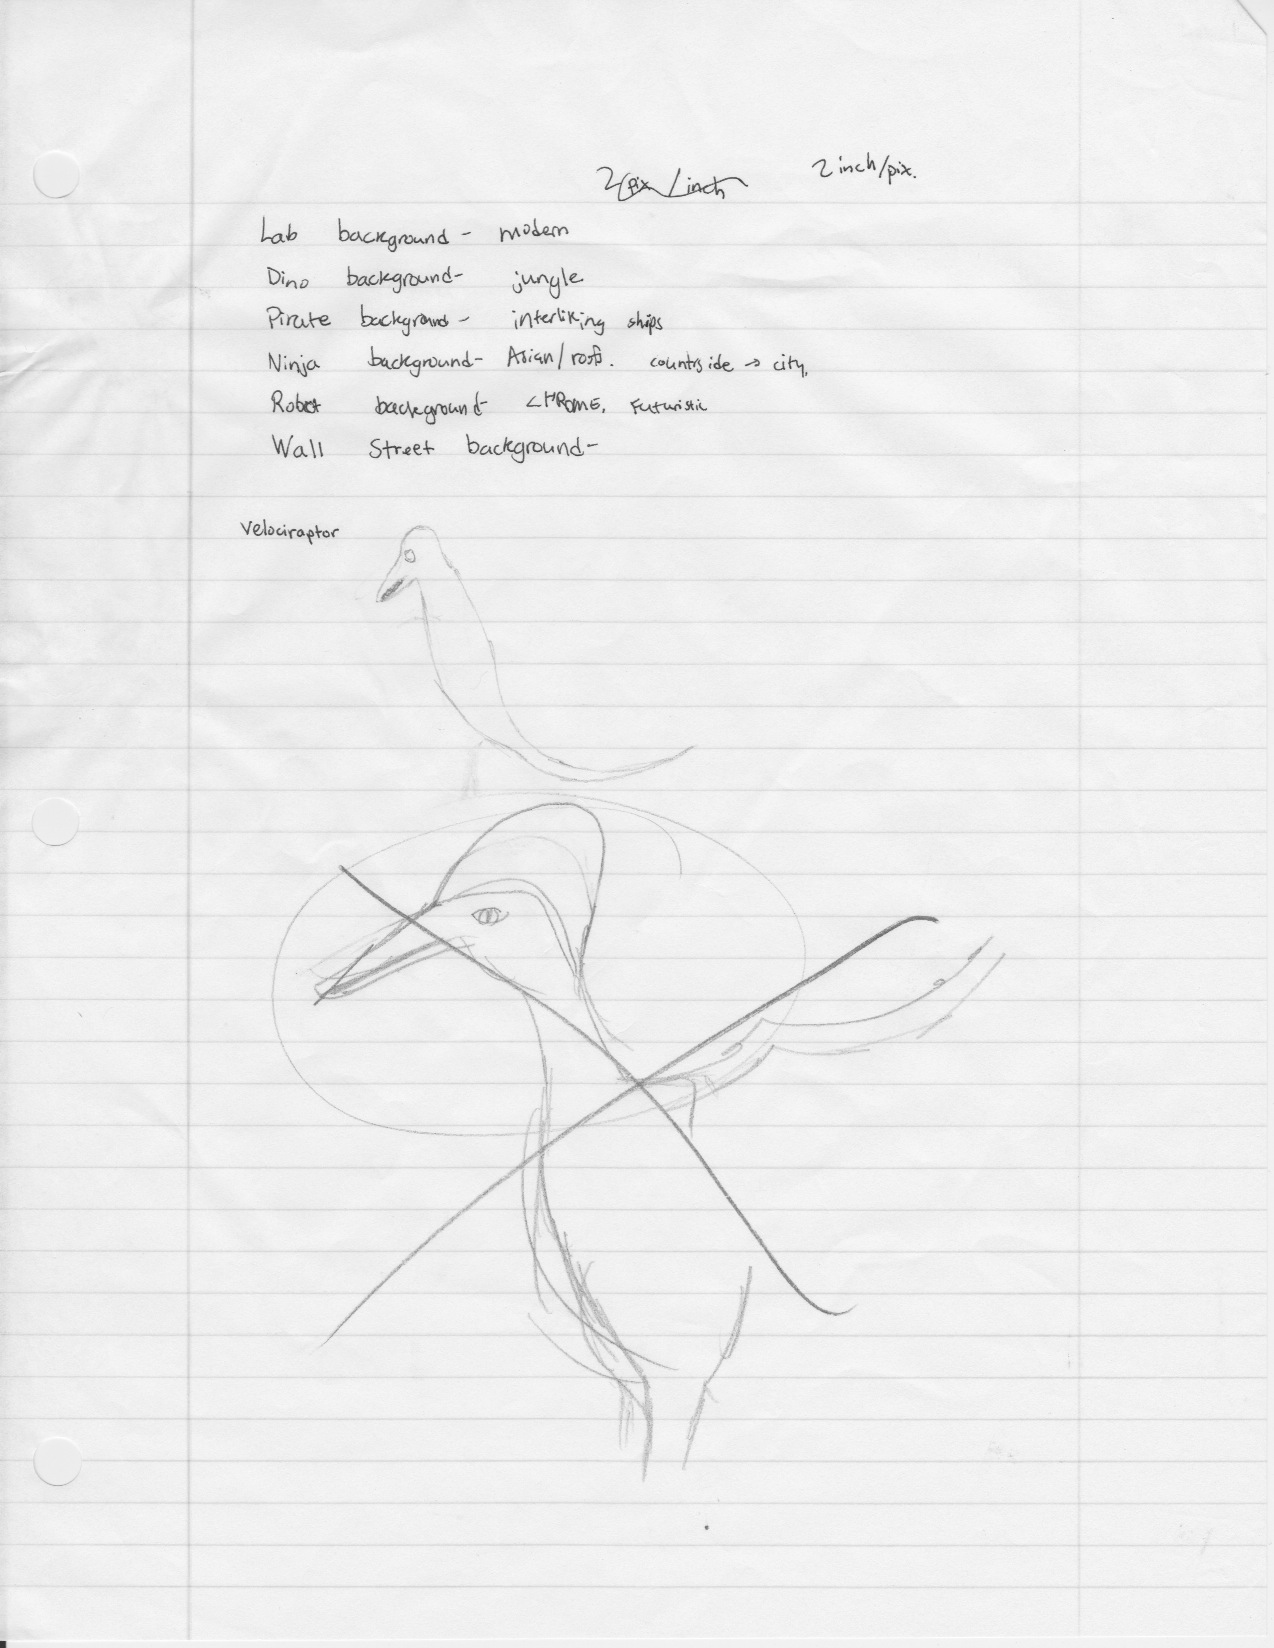 2 pix / inch
2 inch/pix.
Lab background - modern
Dino background- jungle
Pirate background - interliking ships
Ninja background- Asian/roofs. countrside → city,
Robot background CHROME, Futuristic
Wall Street background-
Velociraptor